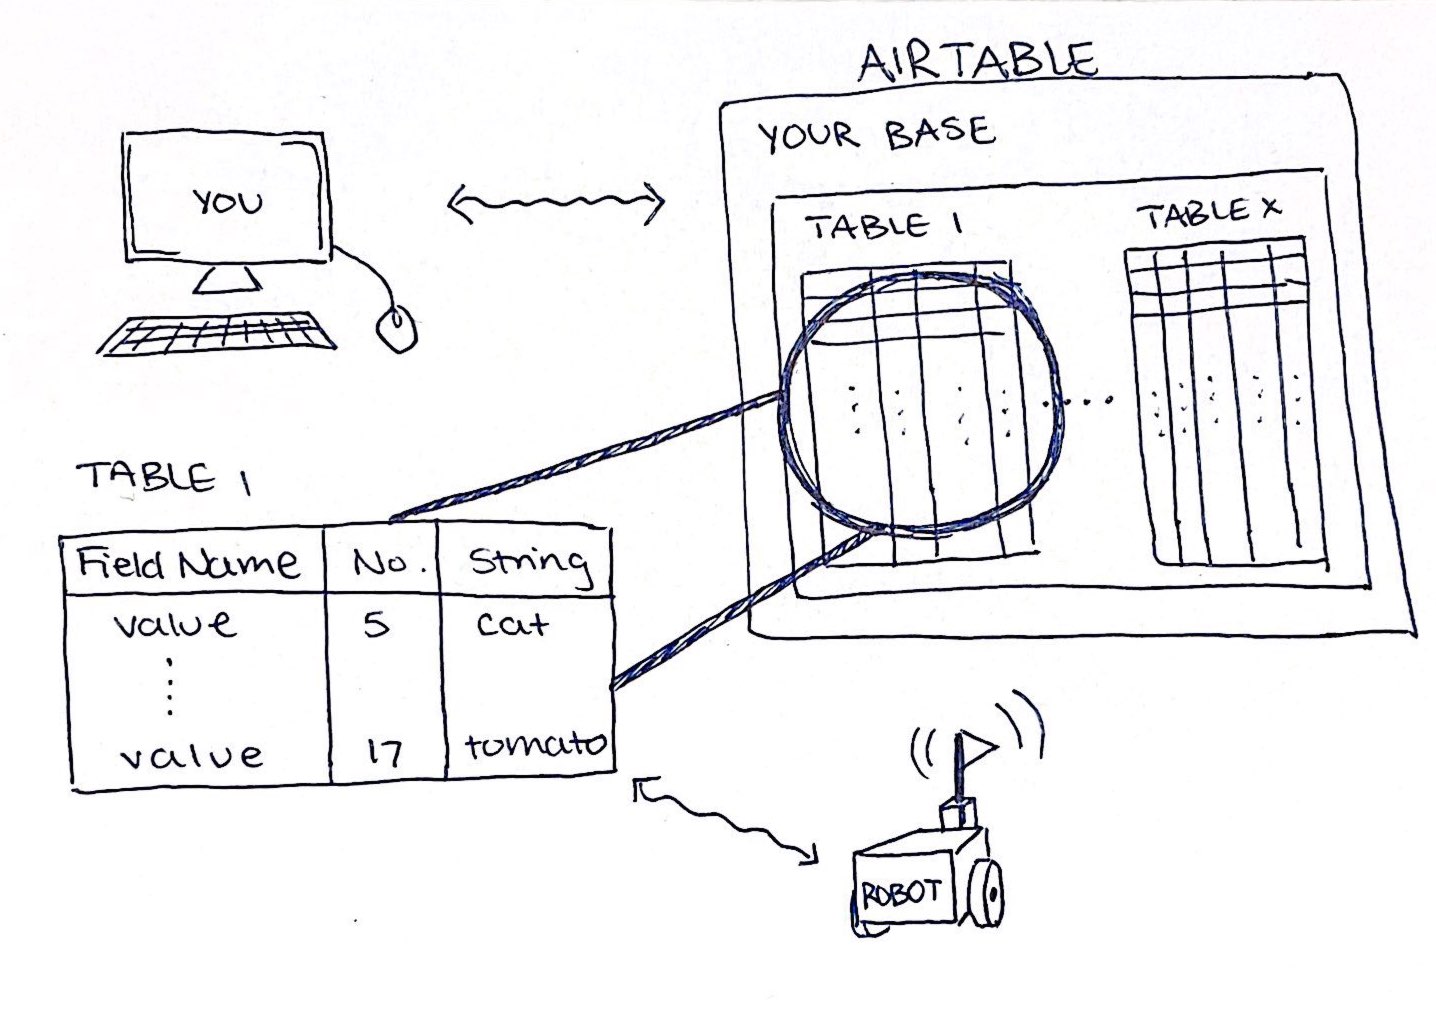 AIRTABLE
YOUR BASE
YOU
TABLE 1
TABLE X
TABLE 1
Field Name No. String
value 5 cat
value 17 tomato
ROBOT